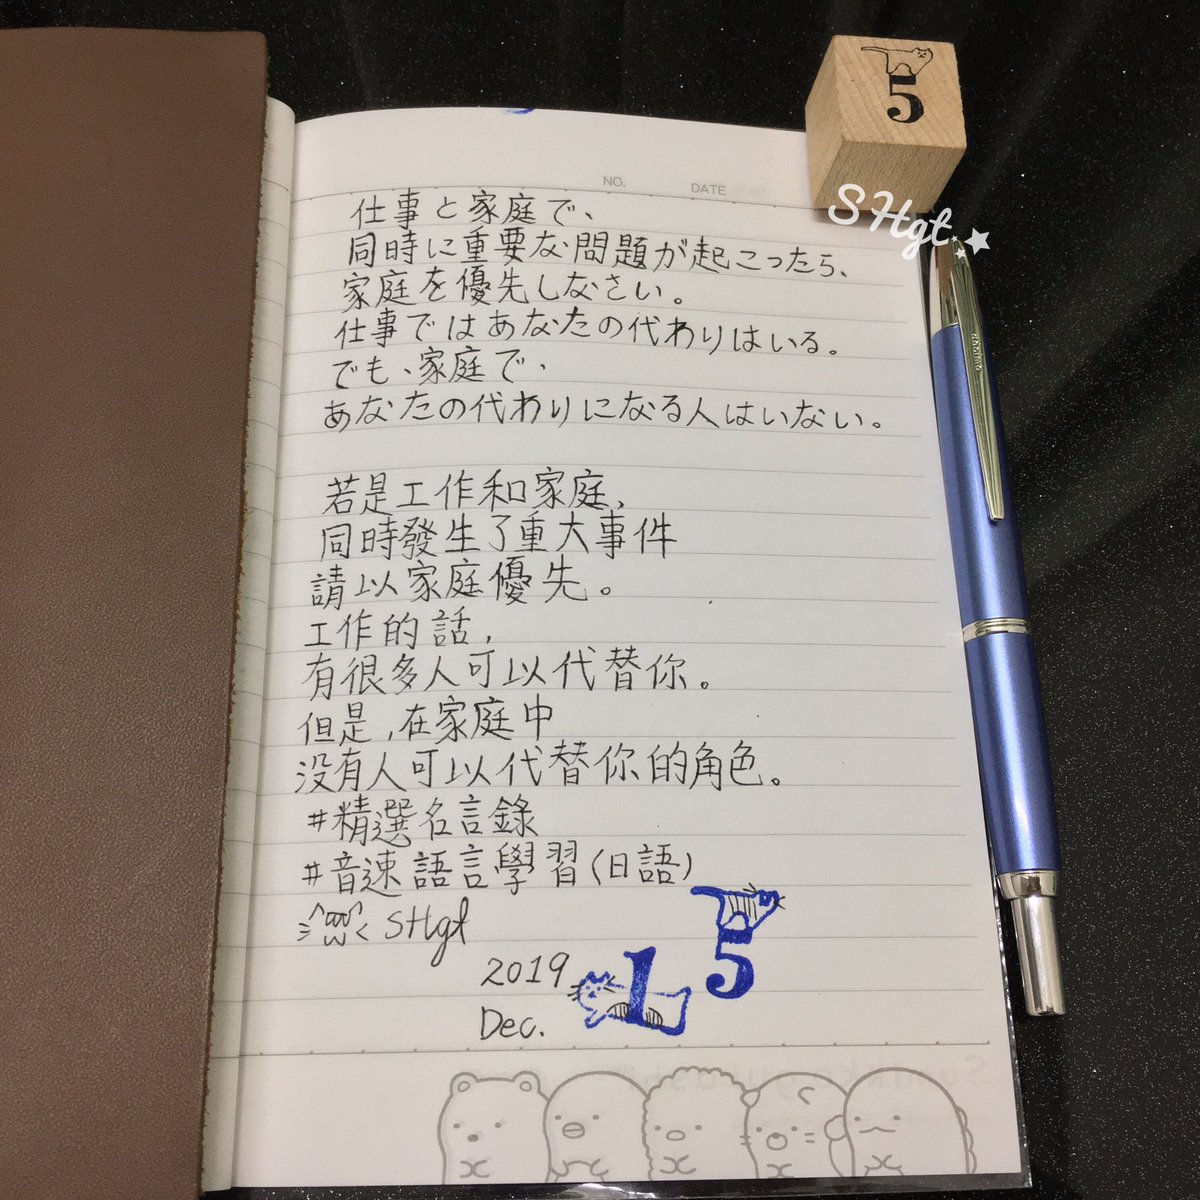 5
SHgt.
NO. DATE
仕事と家庭で、
同時に重要な問題が起こったら、
家庭を優先しなさい。
仕事ではあなたの代わりはいる。
でも、家庭で、
あなたの代わりになる人はいない。
若是工作和家庭,
同時發生了重大事件
請以家庭優先。
工作的話,
有很多人可以代替你。
但是,在家庭中
沒有人可以代替你的角色。
#精選名言錄
#音速語言學習(日語)
SHgt
2019
Dec.
15